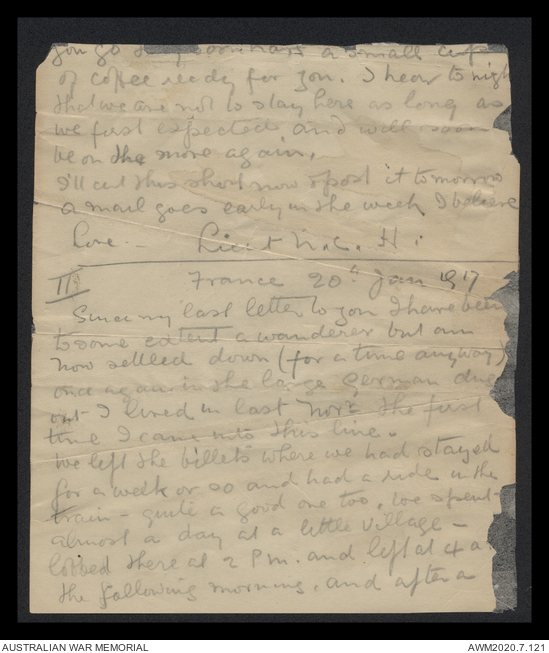 you go they soon have a small cup
of coffee ready for you. I hear to nigh
that we are not to stay here as long as
we first expected, and will soon
be on the move again.
I'll cut this short now & post it tomorrow
a mail goes early in the week I believe
Love - Lieut N.C. H:
11 France 20th Jan 1917
Since my last letter to you I have been
to some extent a wanderer but am
now settled down (for a time anyway)
once again in the large German dug
out I lived in last Novr the first
time I came into this line.
We left the billets where we had stayed
for a week or so and had a ride in the
train - quite a good one too, we spent
almost a day at a little village -
lobbed there at 2 Pm. and left at 4 a
the following morning, and after a
AUSTRALIAN WAR MEMORIAL
AWM2020.7.121